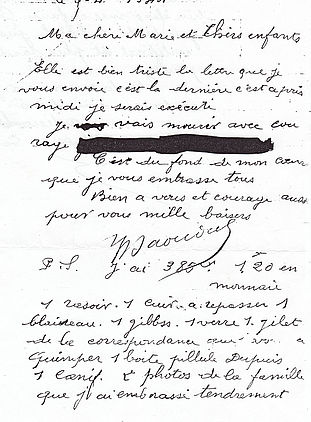 Ma chéri Marie et chers enfants
Elle est bien triste la lettre que je
vous envoie c'est la dernière c'est après
midi je serais exécuté
Je vais mourir avec cou
rage
C'est du fond de mon cœur
que je vous embrasse tous
Bien a vous et courage aussi
pour vous mille baisers
P.S. J'ai 1 20 en
monnaie
1 rasoir. 1 cuir a repasser 1
blaireau. 1 gibbs. 1 verre 1. gilet
de la correspondance
Quimper 1 boite pillule Dupuis
1 canif. 2 photos de la famille
que j'ai embrassi tendrement